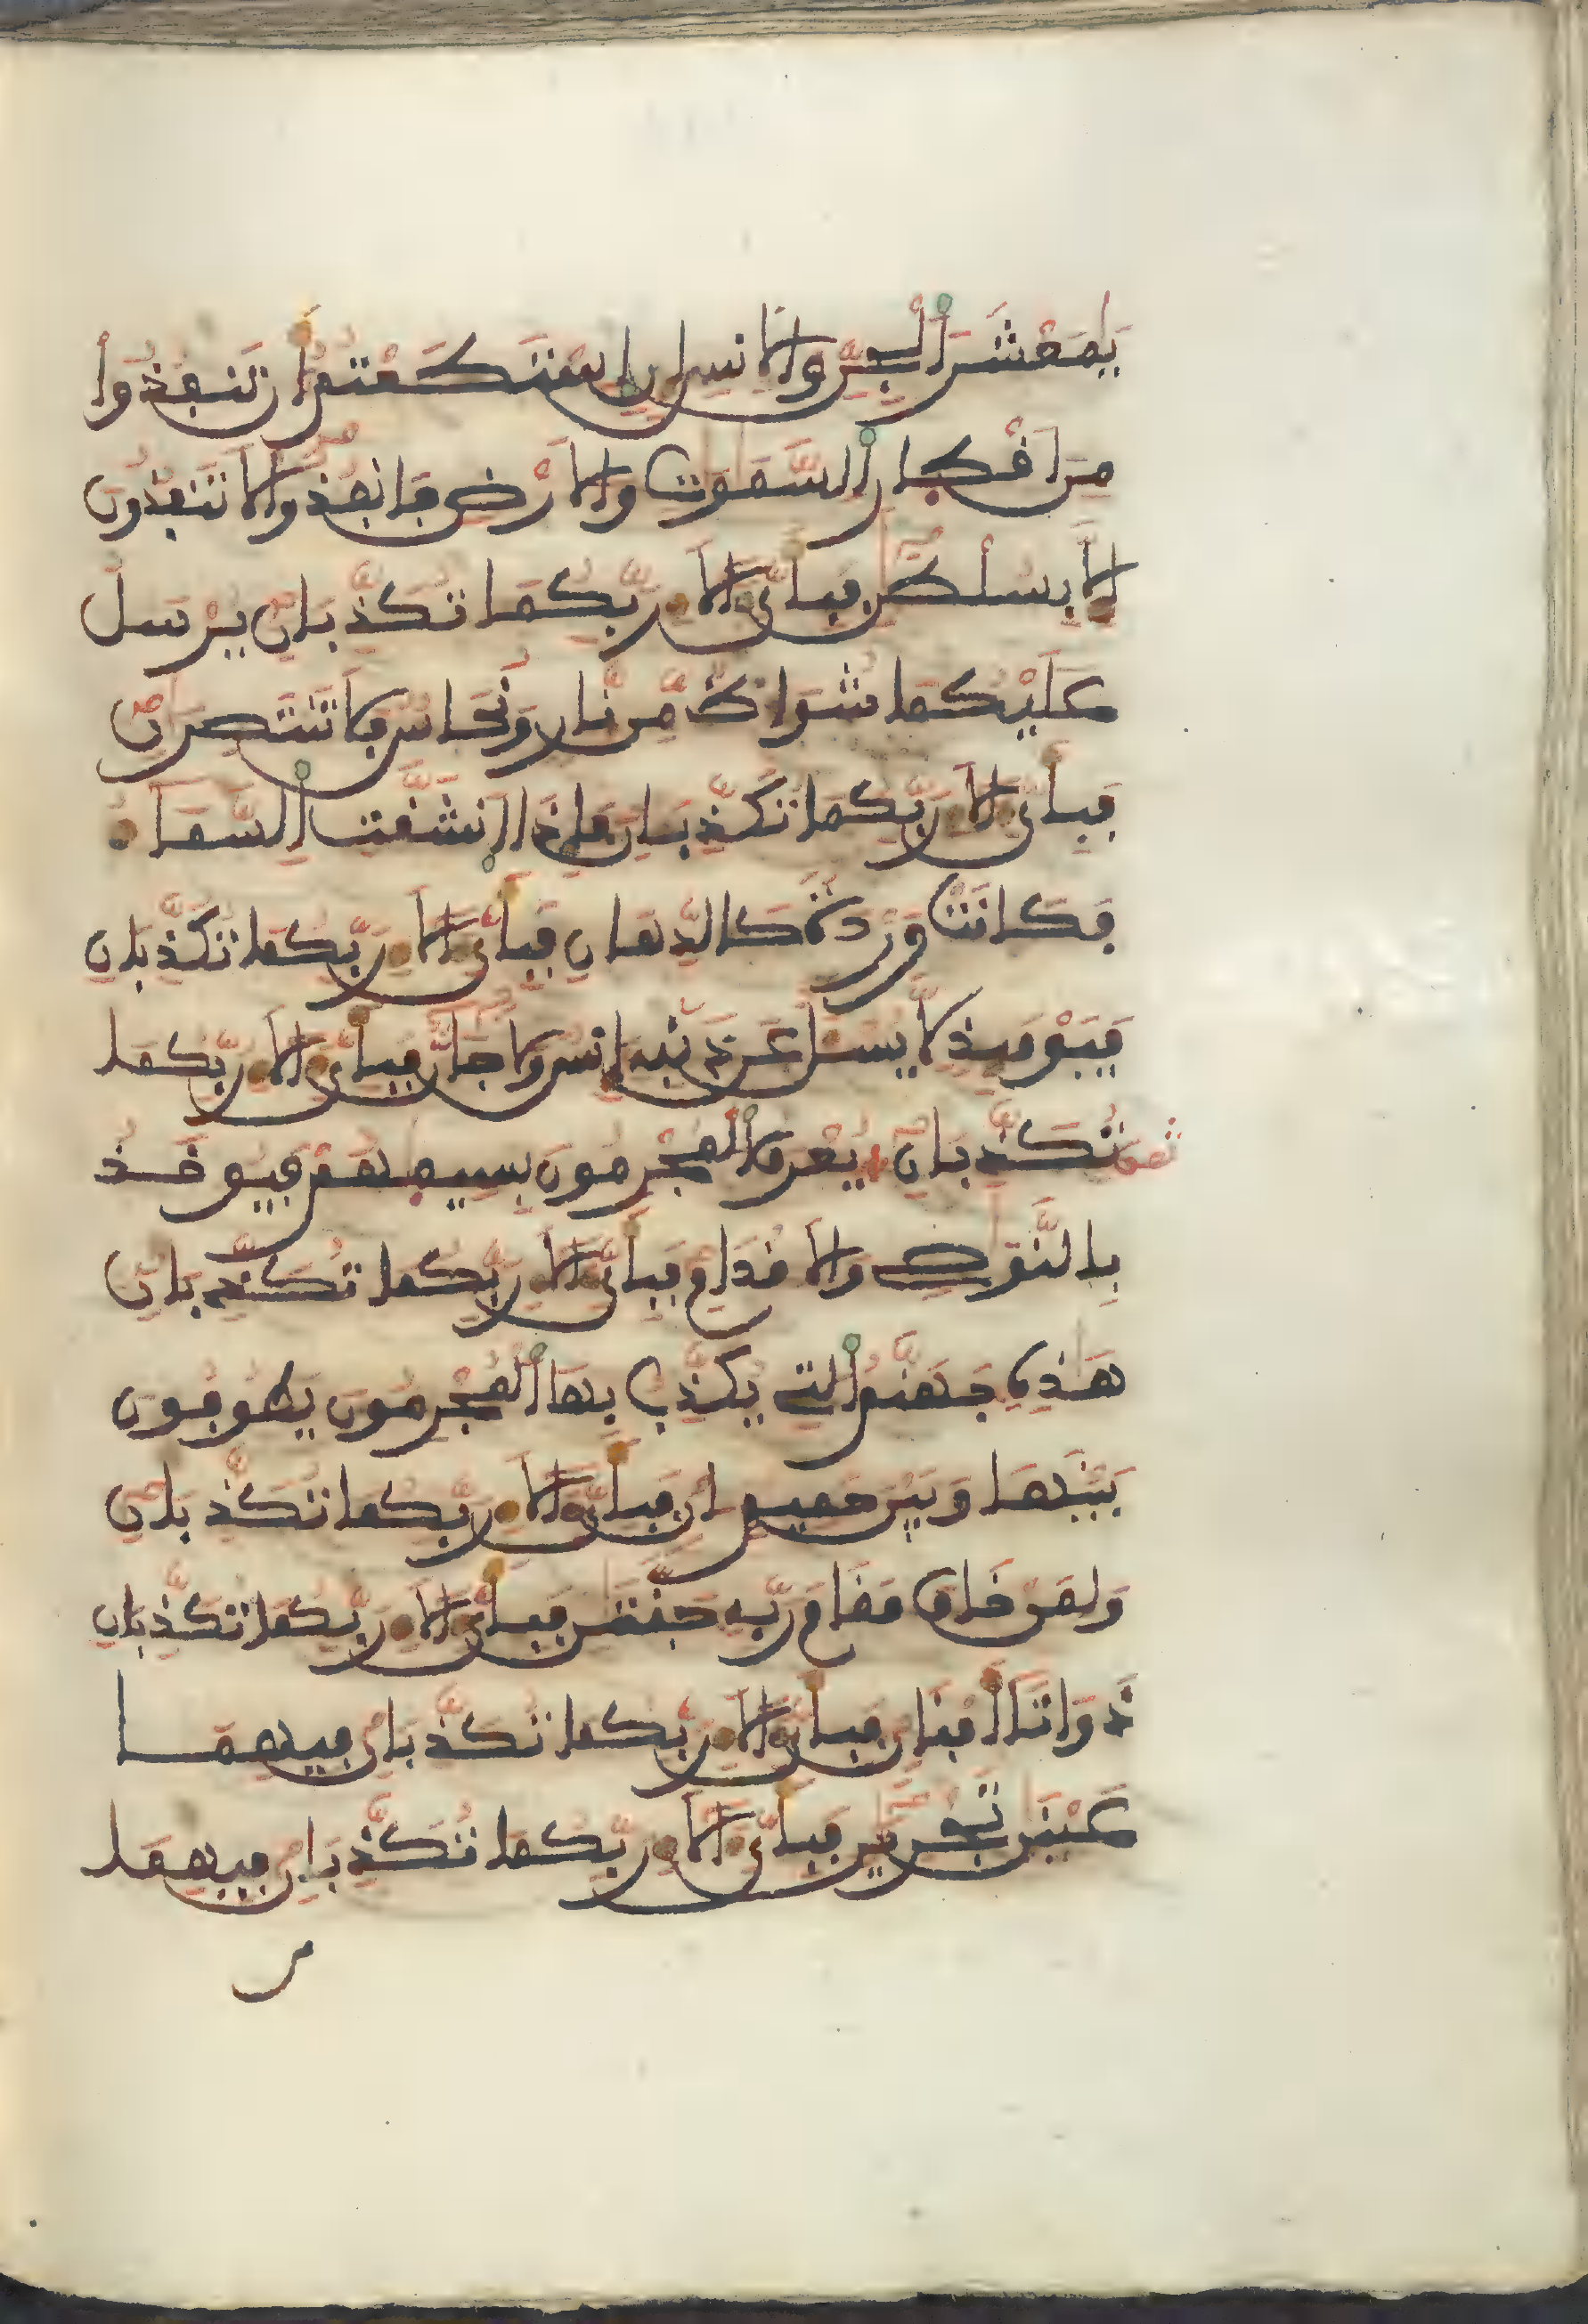 يَٰمَعْشَرَ اَ۬لْجِنِّ وَالَانسِ إِنِ اِ۪سْتَطَعْتُمُ أَن تَنفُذُواْ
مِنَ اَقْطارِ اِ۬لسَّمَٰوَٰتِ وَالَارْضِ فَانفُذُواْ لَا تَنفُذُونَ
إِلَّا بِسُلْطَٰنٍ فَبِأَيِّ ءَالَآءِ رَبِّكُمَا تُكَذِّبَانِ يُرْسَلُ
عَلَيْكُمَا شُوَاظٌ مِّن نَّارٍ وَنُحَاسٌ فَلَا تَنتَصِرَانِ
فَبِأَيِّ ءَالَآءِ رَبِّكُمَا تُكَذِّبَانِ فَإِذَا اَ۪نشَقَّتِ اِ۬لسَّمَآءُ
فَكَانَتْ وَرْدَةً كَالدِّهَانِ فَبِأَيِّ ءَالَآءِ رَبِّكُمَا تُكَذِّبَانِ
فَيَوْمَئِذٍ لَّا يُسْـَٔلُ عَن ذَنۢبِهِۦٓ إِنسٌ وَلَا جَآنٌّ فَبِأَيِّ ءَالَآءِ رَبِّكُمَا
تُكَذِّبَانِ يُعْرَفُ اُ۬لْمُجْرِمُونَ بِسِيمَٰهُمْ فَيُوخَذُ
ثمن
بِالنَّوَٰصِي وَالَاقْدَامِ فَبِأَيِّ ءَالَآءِ رَبِّكُمَا تُكَذِّبَانِ
هَٰذِهِۦ جَهَنَّمُ اُ۬لتِي يُكَذِّبُ بِهَا اَ۬لْمُجْرِمُونَ يَطُوفُونَ
بَيْنَهَا وَبَيْنَ حَمِيمٍ اٰنٍ فَبِأَيِّ ءَالَآءِ رَبِّكُمَا تُكَذِّبَانِ
وَلِمَنْ خَافَ مَقَامَ رَبِّهِۦ جَنَّتَٰنِ فَبِأَيِّ ءَالَآءِ رَبِّكُمَا تُكَذِّبَانِ
ذَوَاتَآ أَفْنَانٍ فَبِأَيِّ ءَالَآءِ رَبِّكُمَا تُكَذِّبَانِ فِيهِمَا
عَيْنَٰنِ تَجْرِيَٰنِ فَبِأَيِّ ءَالَآءِ رَبِّكُمَا تُكَذِّبَانِ فِيهِمَا
من